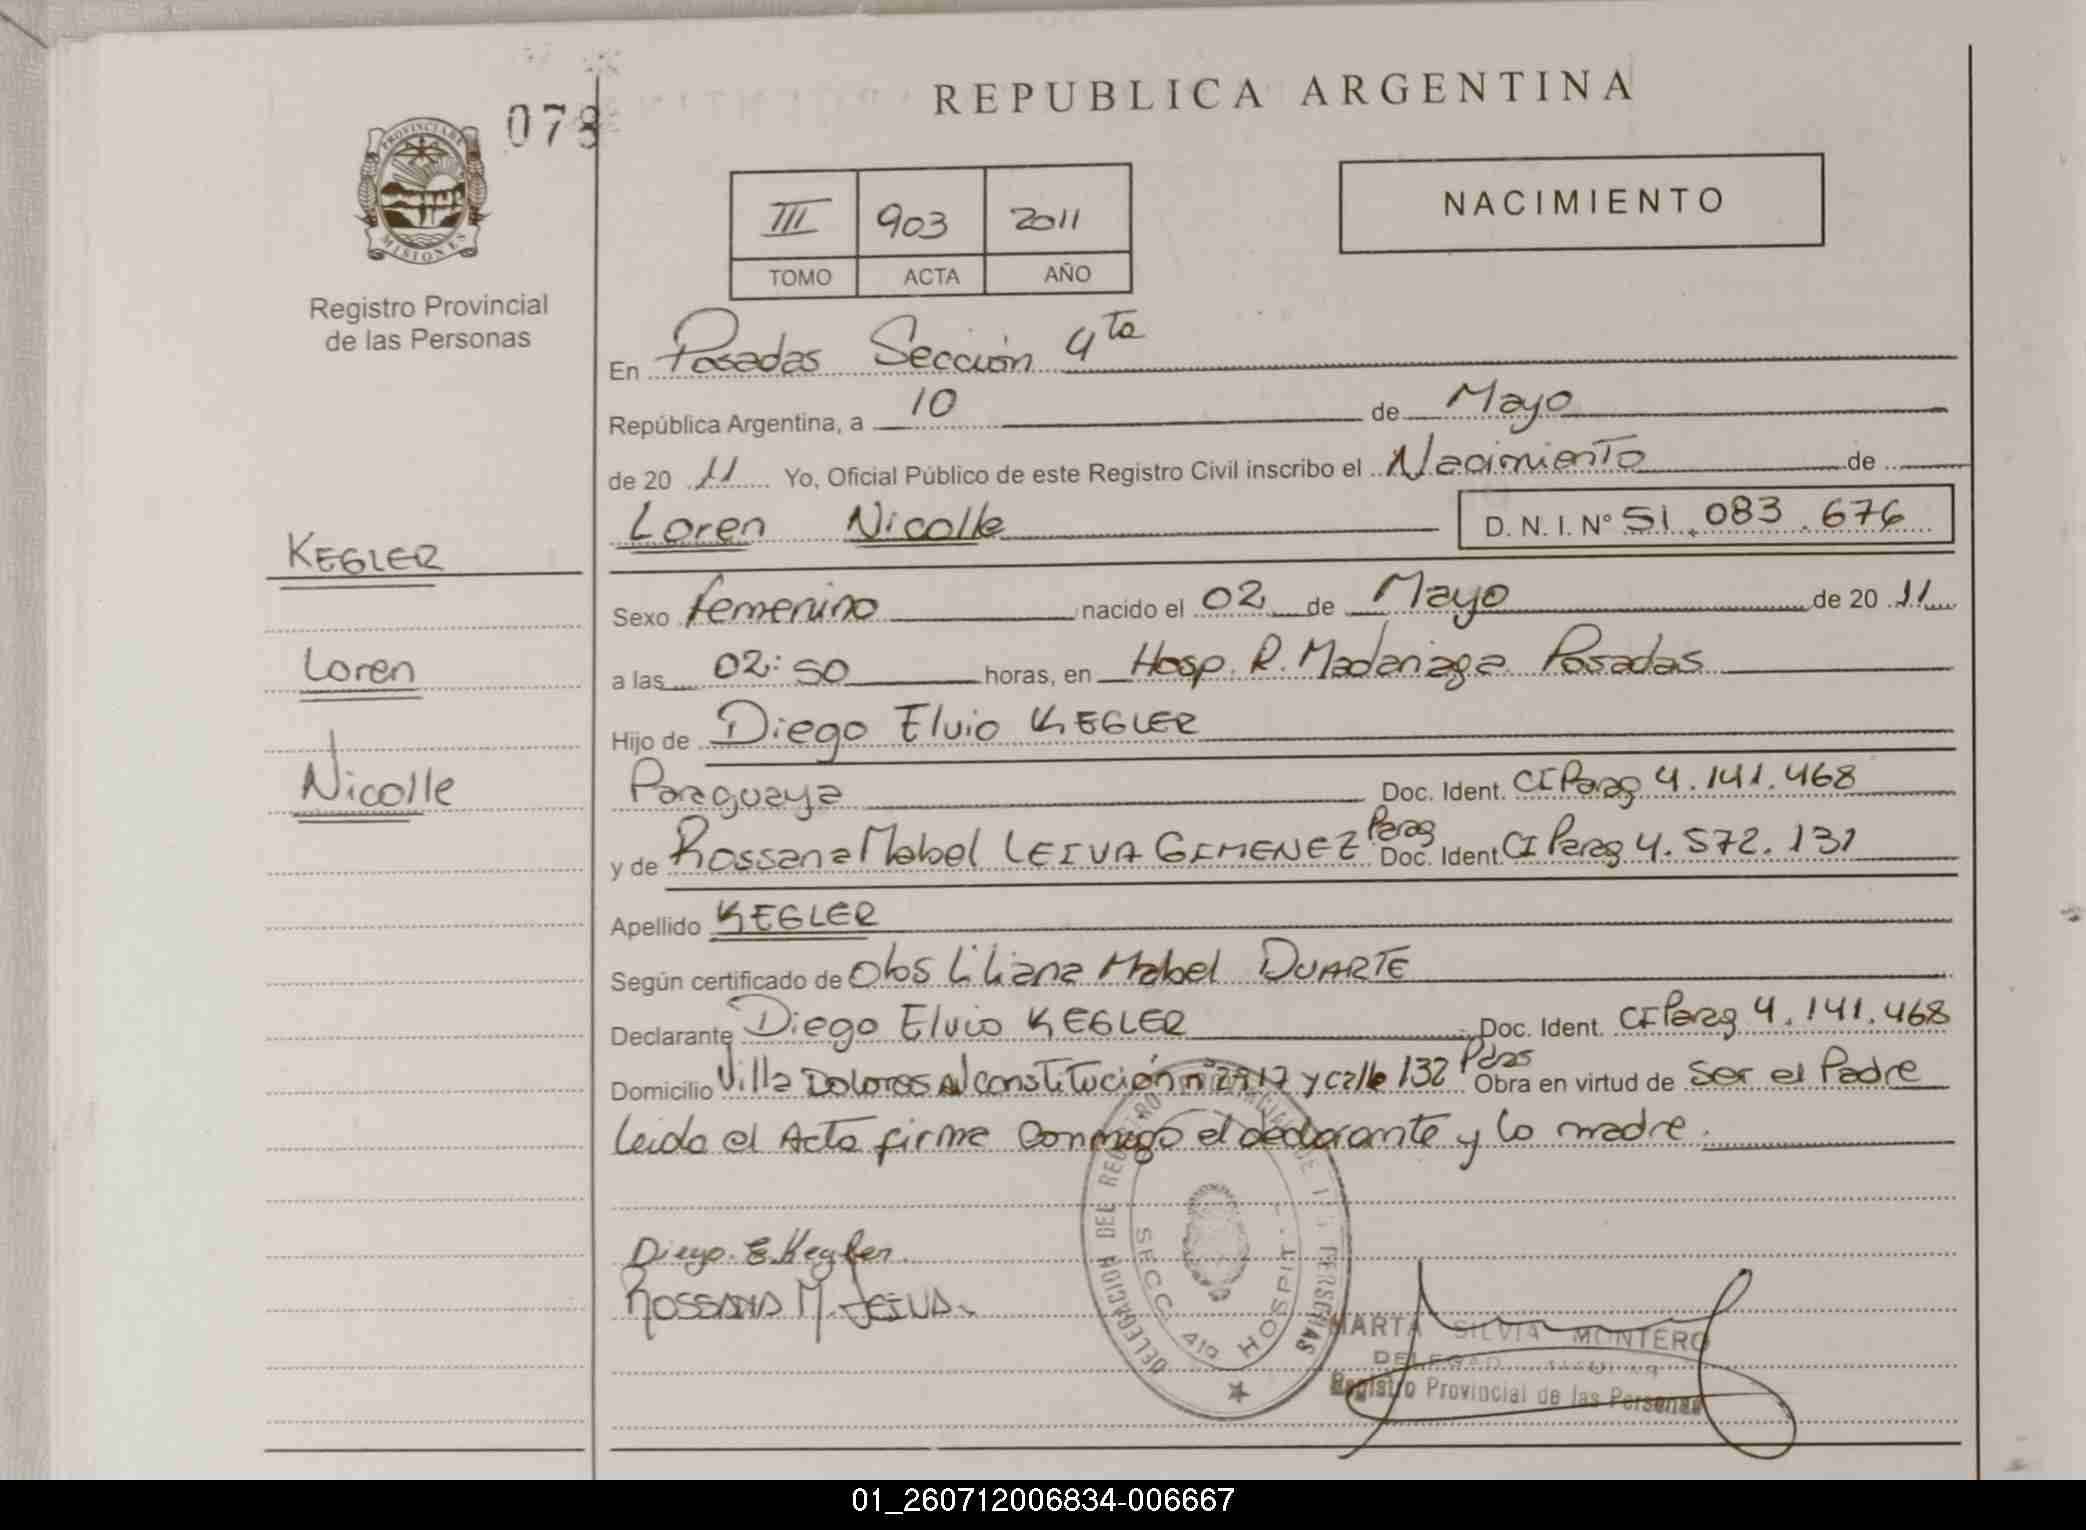 REPUBLICA ARGENTINA
073
PROVINCIA DE
MISIONES
Registro Provincial
de las Personas
III 903 2011
TOMO ACTA AÑO
NACIMIENTO
En Posadas Sección 4ta
República Argentina, a 10 de Mayo
de 20 11 Yo, Oficial Público de este Registro Civil inscribo el Nacimiento de
Loren Nicolle D. N. I. N° 51.083.676
KEGLER
Loren
Nicolle
Sexo femenino nacido el 02 de Mayo de 20 11
a las 02:50 horas, en Hosp. R. Madariaga Posadas
Hijo de Diego Elvio KEGLER
Paraguaya Doc. Ident. CI Parag 4.141.468
y de Rossana Mabel LEIVA GIMENEZ Parag Doc. Ident. CI Parag 4.572.131
Apellido KEGLER
Según certificado de Obs Liliana Mabel DUARTE
Declarante Diego Elvio KEGLER Doc. Ident. CI Parag 4.141.468
Domicilio Villa Dolores Av constitución n° y calle 132 Pdas Obra en virtud de Ser el Padre
Leida el Acta firma conmigo el declarante y la madre.
Diego E. Kegler.
ROSSANA M. LEIVA.
DELEGACION DEL REGISTRO DE LAS PERSONAS
SECC. 4ta HOSPIT.
MARTA SILVIA MONTERO
DELEGADA TITULAR
Registro Provincial de las Personas
01_260712006834-006667